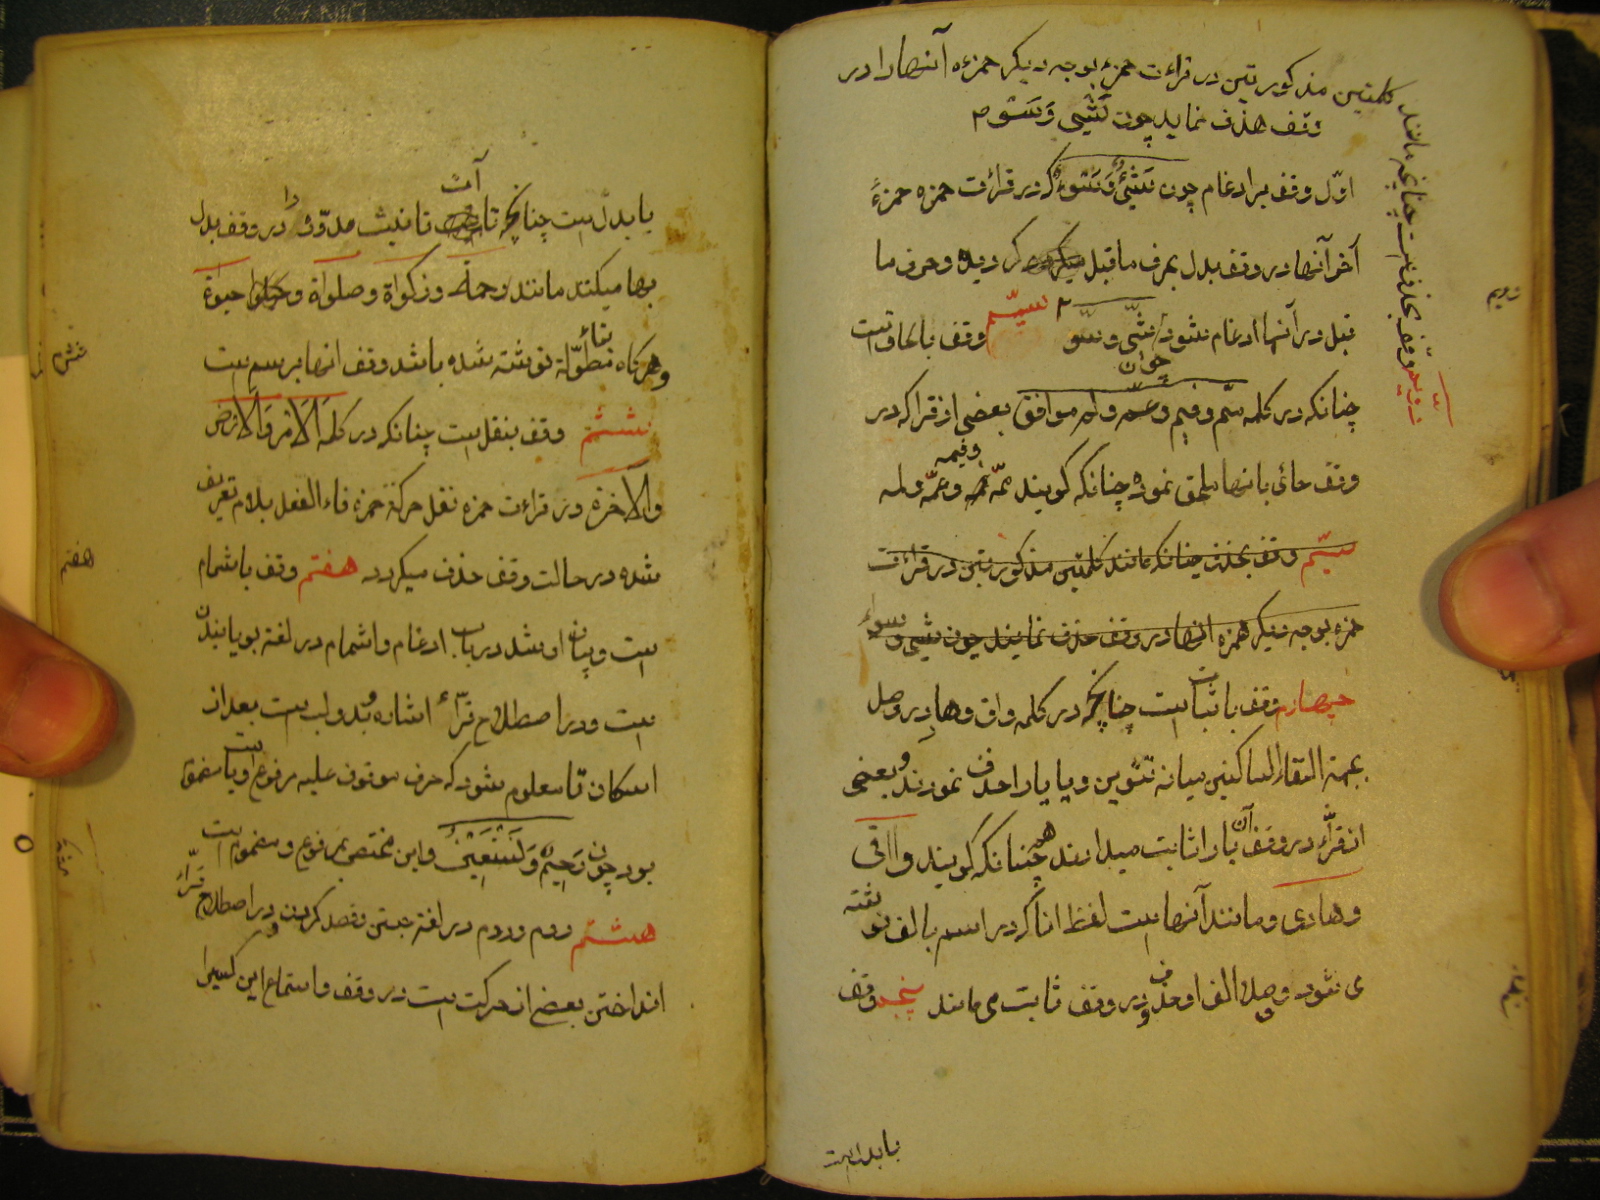 دویم وقف بحذفست چنانچه مانند
کلمتین مذکورتین در قراءت حمزه بوجه دیگر حمزه آنها را در
وقف حذف نماید چون شَیْ وَسَوْ
اوّل وقف بر ادغام چون شَیْءٌ وَسُوءٌ که در قراءت حمزه حمزهٔ
آخر آنها در وقف بدل بحرف ماقبل کردیده و حرف ما
قبل در آنها ادغام شود چون شیّ و سوّ سیّم وقف بالحاقست
چنانکه در کلمه ممّ و فیم و عمّ و لم موافق بعضی از قرا که در
وقف هائی بانها ملحق نموده چنانکه کویند ممّه وفیمه وعمّه ولمه
سیّم وقف بحذف چنانکه مانند کلمتین مذکورتین در قراءت
حمزه بوجه دیگر همزه آنها در وقف حذف نمایند چون شیی و سوء
چهارم وقف باثباتست چنانچه در کلمه واق وهادٍ در وصل
بجهة التقاء الساکنین میانه تنوین و یا یا را حذف نمودند و بعضی
از قرّاء در وقف آن یا را ثابت میدارند همچنانکه کویند واقی
وهادی ومانند آنهاست لفظ انا که در اسم بالف نوشته
می شود و وصلا الف او حذف و در وقف ثابت می ماند پنجم وقف
بابدالست
بابدالست چنانچه تاآت تانیث مدوّر را در وقف بدل
بها میکنند مانند رحمة وزکواة وصلواة و حیوة
وهرکاه بتاء مطوّلة نوشته شده باشد وقف انها برسم است
ششم وقف بنقل است چنانکه در کلمه الامر والارض
والاخرة در قراءت حمزه نقل حرکة حمزه فاء الفعل بلام تعریف
شده در حالت وقف حذف میکردد هفتم وقف باشمام
است وبیان او شد در باب ادغام واشمام در لغة بویانیدن
است ودر اصطلاح قرّاء اشاره بدو لب است بعد از
اسکان تا معلوم شود که حرف موقوف علیه مرفوع است ویا مضموم
بود چون رَحِیمٌ وَنَسْتَعِینُ واین مختص بمرفوع ومضمومست
هشتم روم وروم در لغة جستن وقصد کردن ودر اصطلاح قرّاء
انداختن بعض از حرکت است در وقف واستماع این کسیرا
دویم
ششم
هفتم